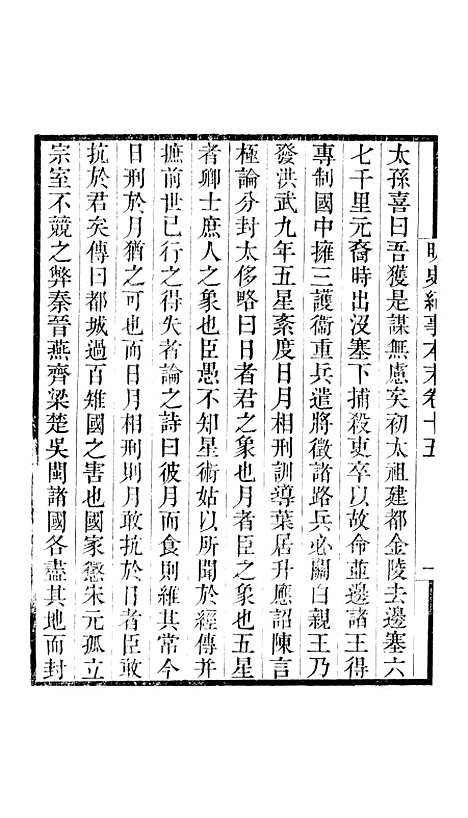 明史紀事本末卷十五
一
太孫喜曰吾獲是謀無慮矣初太祖建都金陵去邊塞六
七千里元裔時出沒塞下捕殺吏卒以故命並邊諸王得
專制國中擁三護衞重兵遣將徵諸路兵必關白親王乃
發洪武九年五星紊度日月相刑訓導葉居升應詔陳言
極論分封太侈略曰日者君之象也月者臣之象也五星
者卿士庶人之象也臣愚不知星術姑以所聞於經傳并
摭前世已行之得失者論之詩曰彼月而食則維其常今
日刑於月猶之可也而日月相刑則月敢抗於日者臣敢
抗於君矣傳曰都城過百雉國之害也國家懲宋元孤立
宗室不競之弊秦晉燕齊梁楚吳閩諸國各盡其地而封